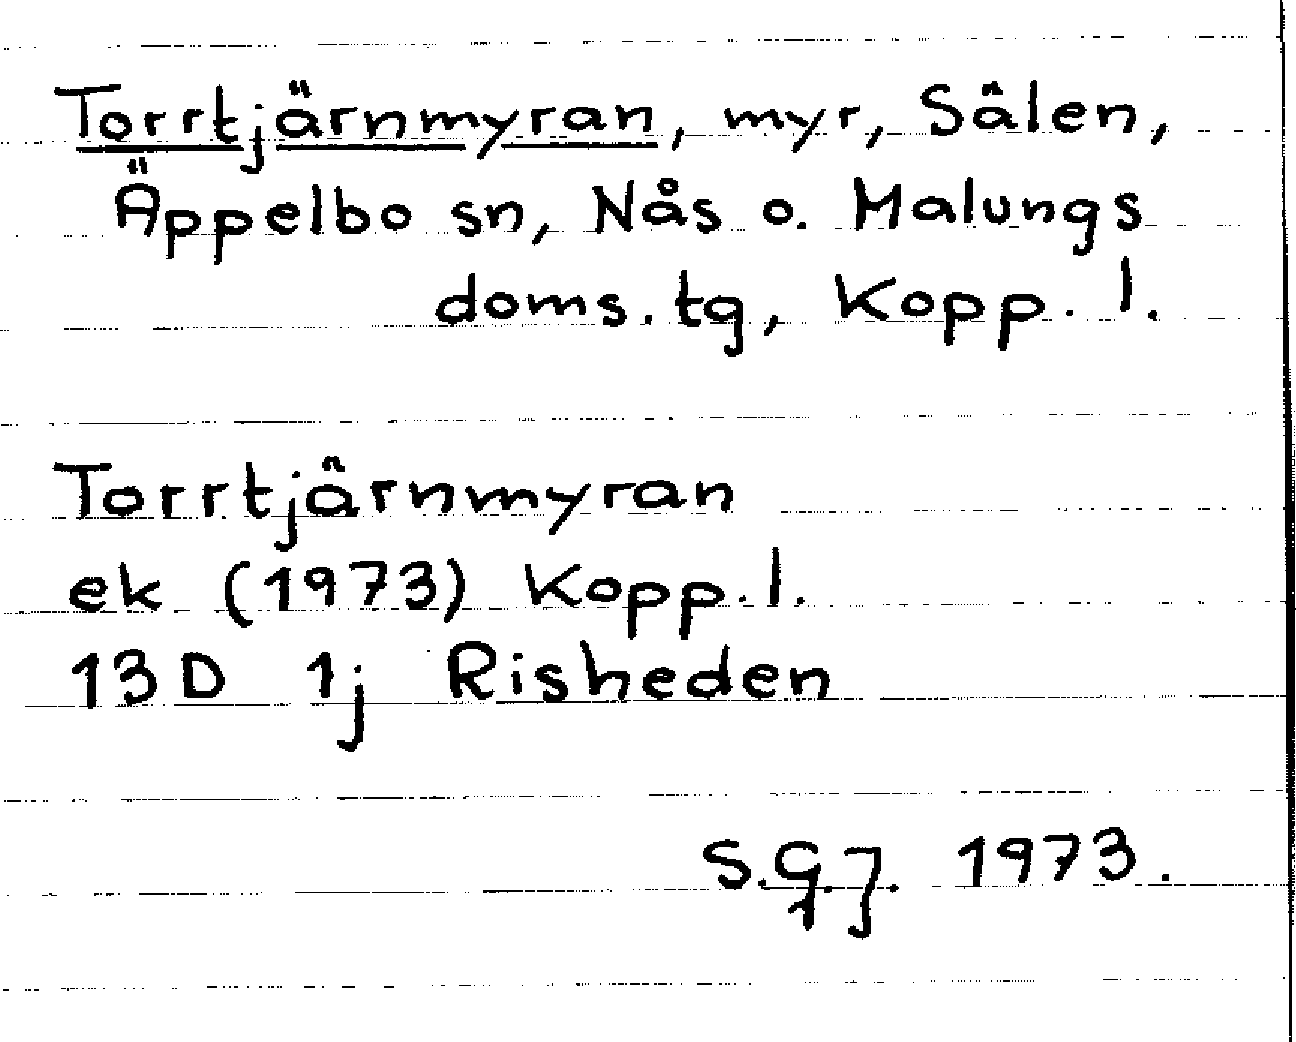 Torrtjärnmyran, myr, Sälen,
Äppelbo sn, Nås o. Malungs
doms.tg, Kopp. l.
Torrtjärnmyran
ek (1973) Kopp. l.
13D 1j Risheden
S.G.J. 1973.